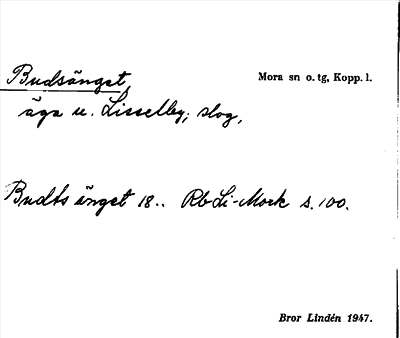 Budsänget,
Mora sn o. tg, Kopp. l.
äga u. Lisselby; slog,
Budts änget 18.. Rb Li-Mork s. 100.
Bror Lindén 1947.